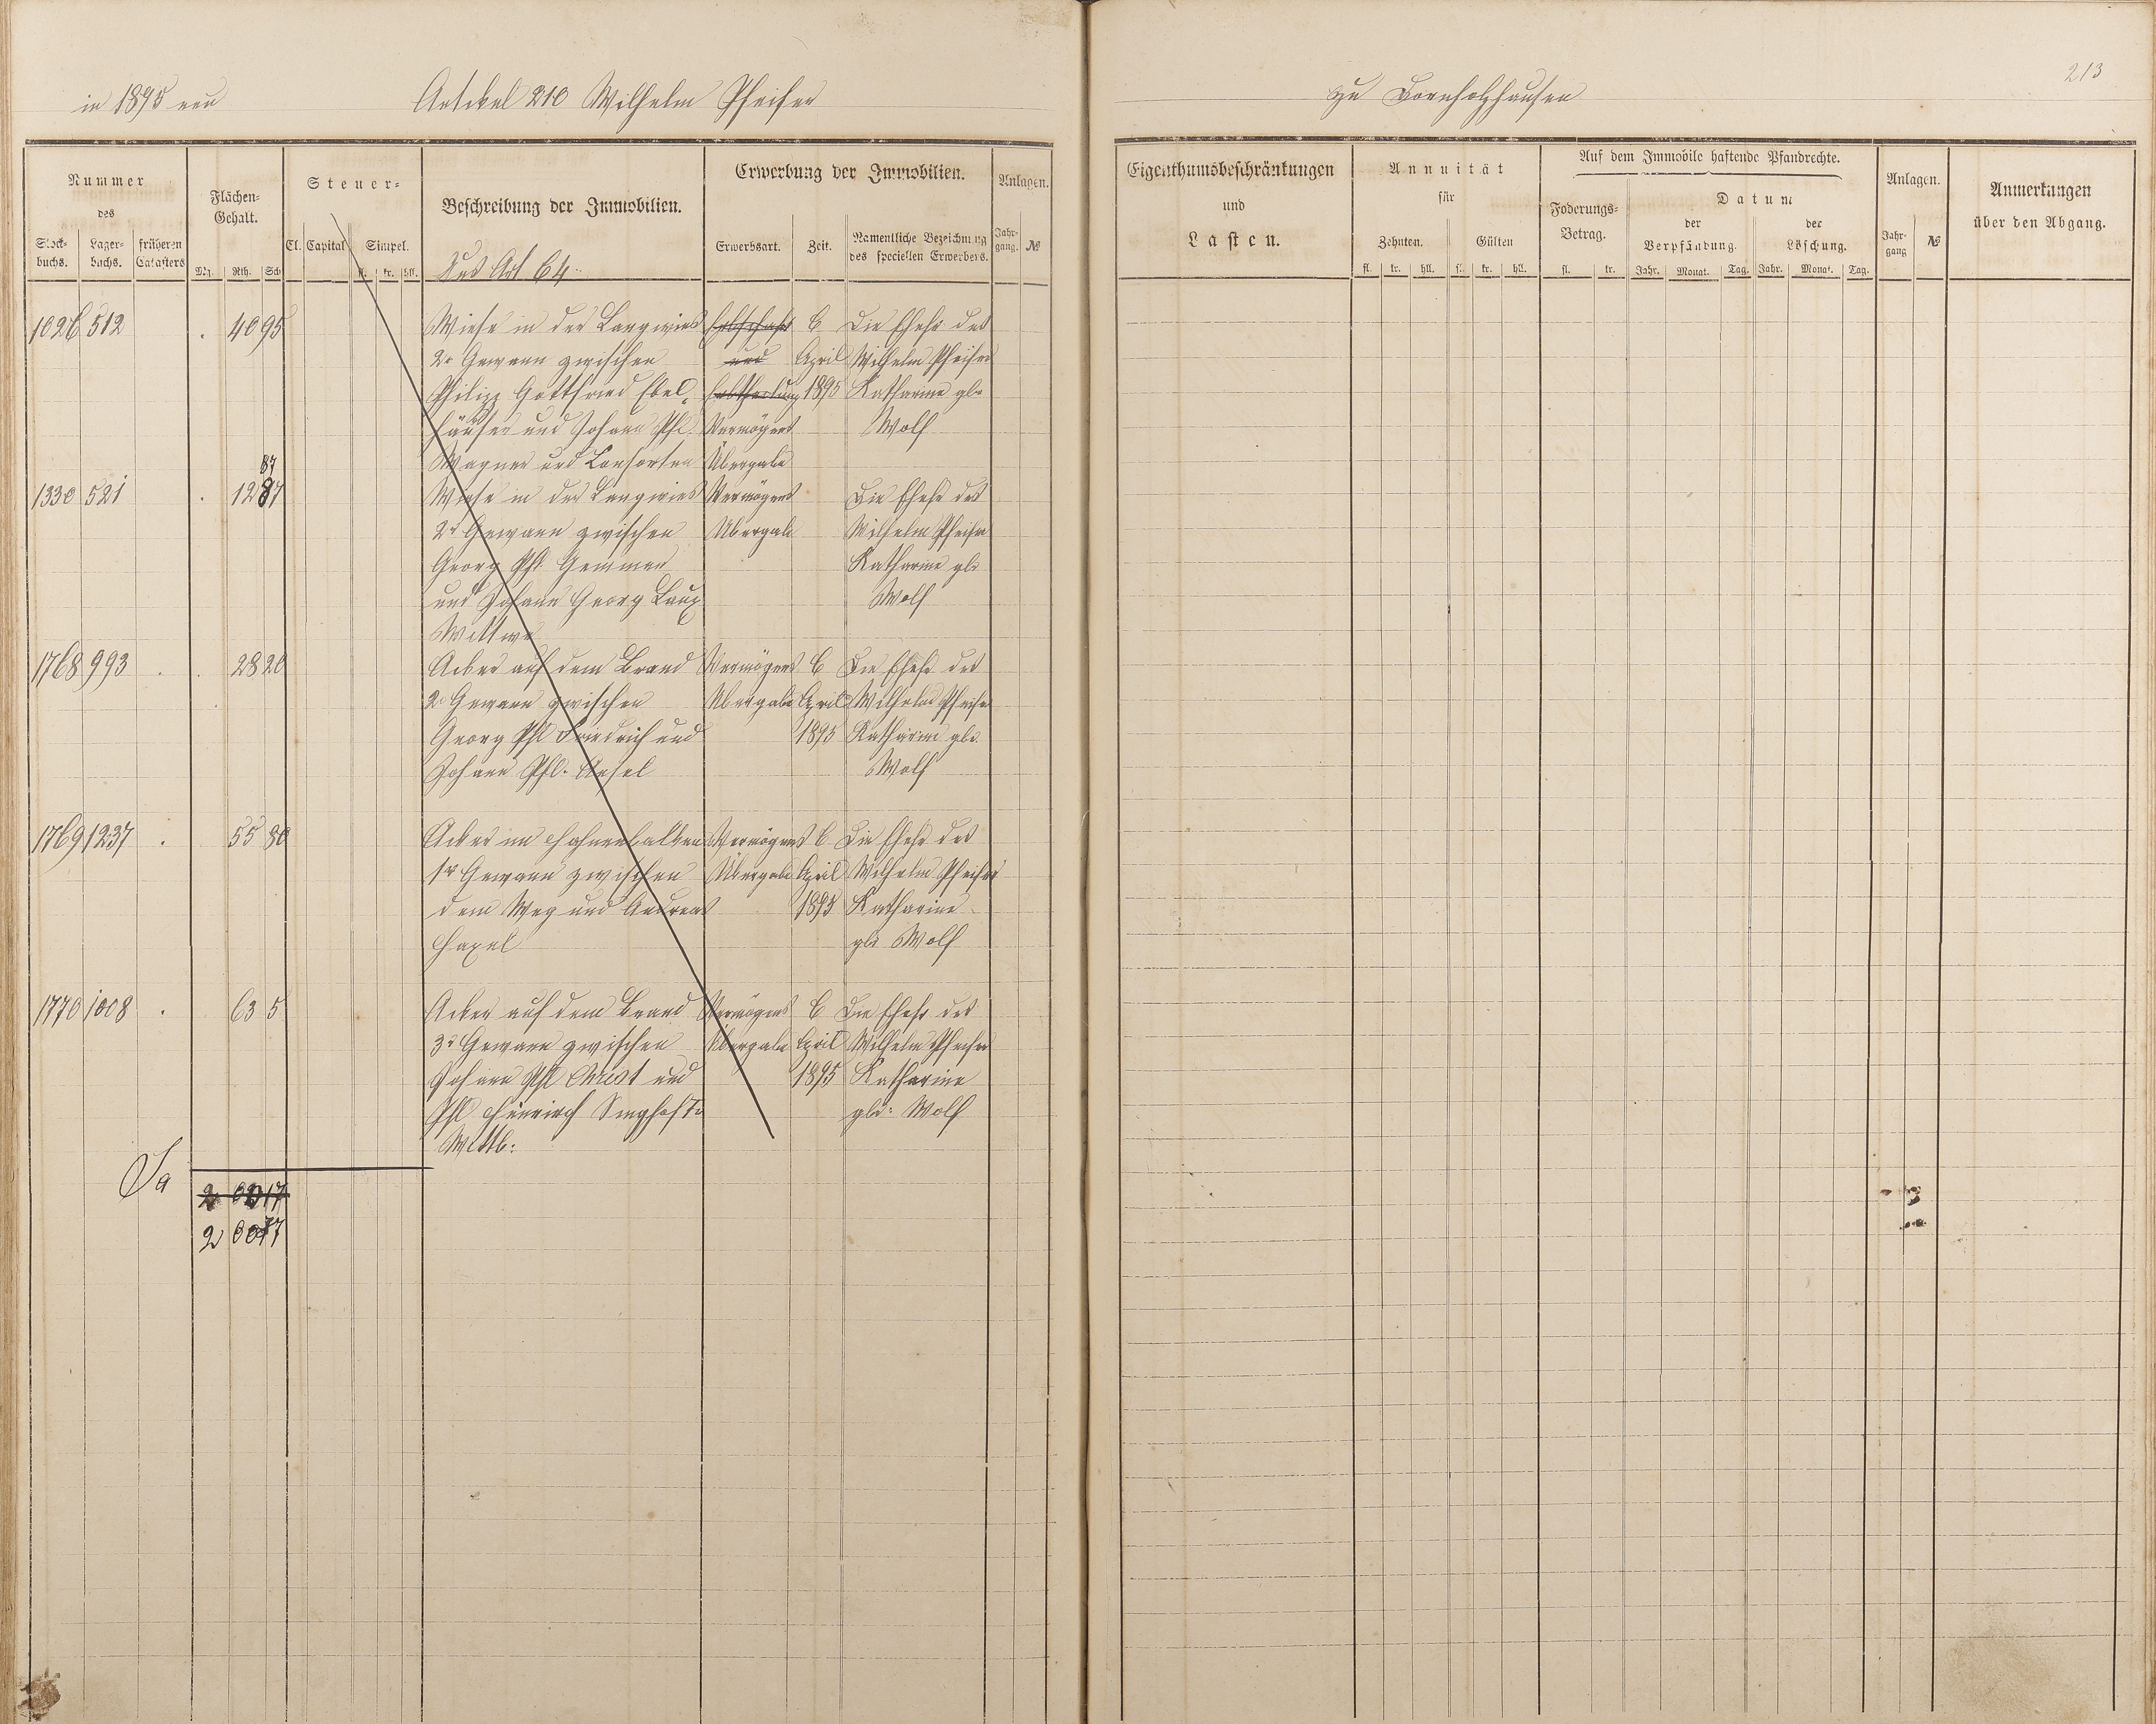 213
in 1895 neu Artikel 210 Wilhelm Pfeifer zu Bornholzhausen
Nummer des
Stock-buchs. Lager-buchs. früheren Catasters
Flächen-Gehalt.
Mg. Rth. Sch
Steuer-
Cl. Capital Simpel.
fl. kr. hll.
Beschreibung der Immobilien.
Aus Art 64
Erwerbung der Immobilien.
Erwerbsart. Zeit. Namentliche Bezeichnung des speciellen Erwerbers.
Anlagen.
Jahr-gang. №
Eigenthumsbeschränkungen und Lasten.
Annuität für
Zehnten. Gülten
fl. kr. hll. fl. kr. hll.
Auf dem Immobile haftende Pfandrechte.
Foderungs-Betrag.
fl. kr.
Datum
der Verpfändung. der Löschung.
Jahr. Monat. Tag. Jahr. Monat. Tag.
Anlagen.
Jahr-gang №
Anmerkungen über den Abgang.
1026 512 . 40 95 Wiese in der Langwies Erbschaft 6 Die Ehefr des
2r Gewann zwischen und April Wilhelm Pfeifer
Philipp Gottfried Ebel- Erbtheilung 1895 Katharine gbr
häuser und Johann Phl. Vermögens Wolf
Wagner und Consorten Übergabe
87
1330 521 . 12 87 Wiese in der Langwies Vermögens Die Ehefr des
2r Gewann zwischen Übergabe Wilhelm Pfeifer
Georg Phl. Gemmer Katharine gbr
und Johann Georg Laux Wolf
Wittwe
1768 993 . . 28 20 Acker auf dem Brand Vermögens 6 Die Ehefr des
2r Gewann zwischen Übergabe April Wilhelm Pfeifer
Georg Phl Friedrich und 1895 Katharine gbr
Johann Phl. Wolf
1769 1237 . 55 80 Acker im Vermögens 6 Die Ehefr des
1r Gewann zwischen Übergabe April Wilhelm Pfeifer
dem Weg und Andreas 1895 Katharine
gbr Wolf
1770 1008 . 63 5 Acker auf dem Brand Vermögens 6 Die Ehefr des
3r Gewann zwischen Übergabe April Wilhelm Pfeifer
Johann Phl Christ und 1895 Katharine
Phl Heinrich Singhofs gbr: Wolf
Wittb:
Sa
2 00 77